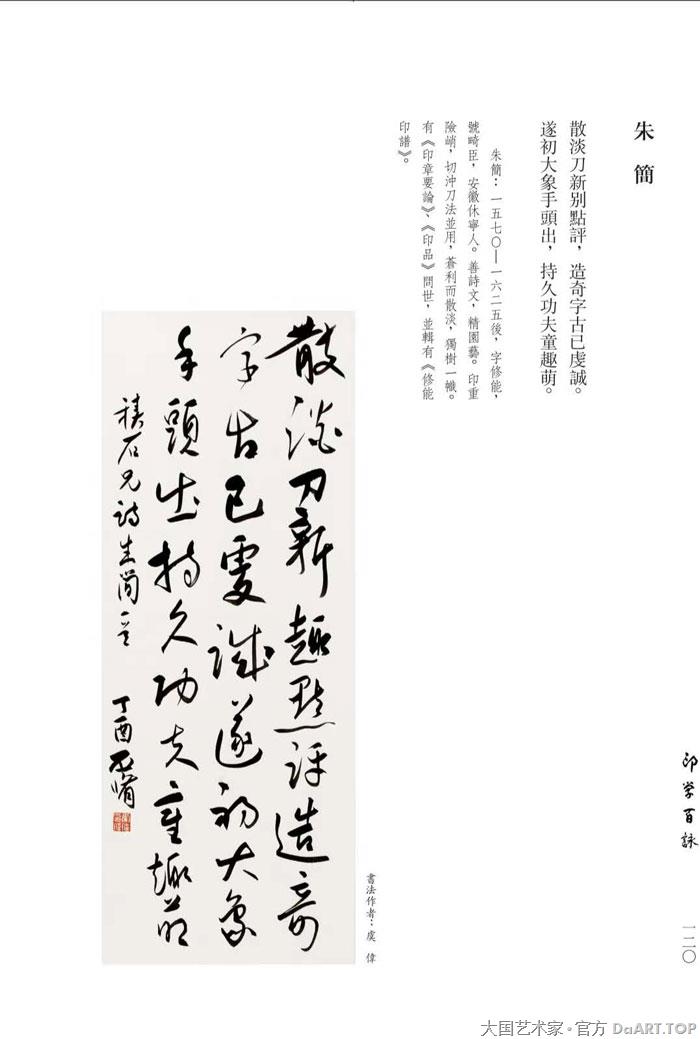 朱簡
散淡刀新別點評，造奇字古已虔誠。
遂初大象手頭出，持久功夫童趣萌。
朱簡：一五七〇—一六二五後，字修能，
號畸臣，安徽休寧人。善詩文，精園藝。印重
險峭，切沖刀法並用，蒼利而散淡，獨樹一幟。
有《印章要論》、《印品》問世，並輯有《修能
印譜》。
散淡刀新趣點評造奇
字古已虔誠遂初大象
手頭出持久功夫童趣萌
積石兄詩朱簡一首 丁酉
書法作者：虞偉
印學百詠
一二〇
大国艺术家·官方 DaART.TOP